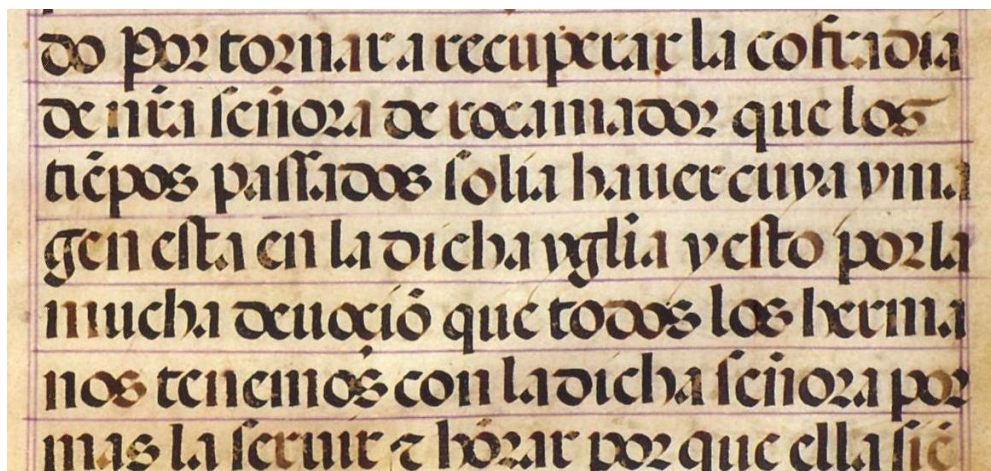 do por tornar a recuperar la cofradia
de nr̃a señora de rocamador que los
tiẽpos passados solia hauer cuya yma
gen esta en la dicha ygl̃ia y esto por la
mucha deuociõ que todos los herma
nos tenemos con la dicha señora por
mas la seruir τ hõrar por que ella siẽ